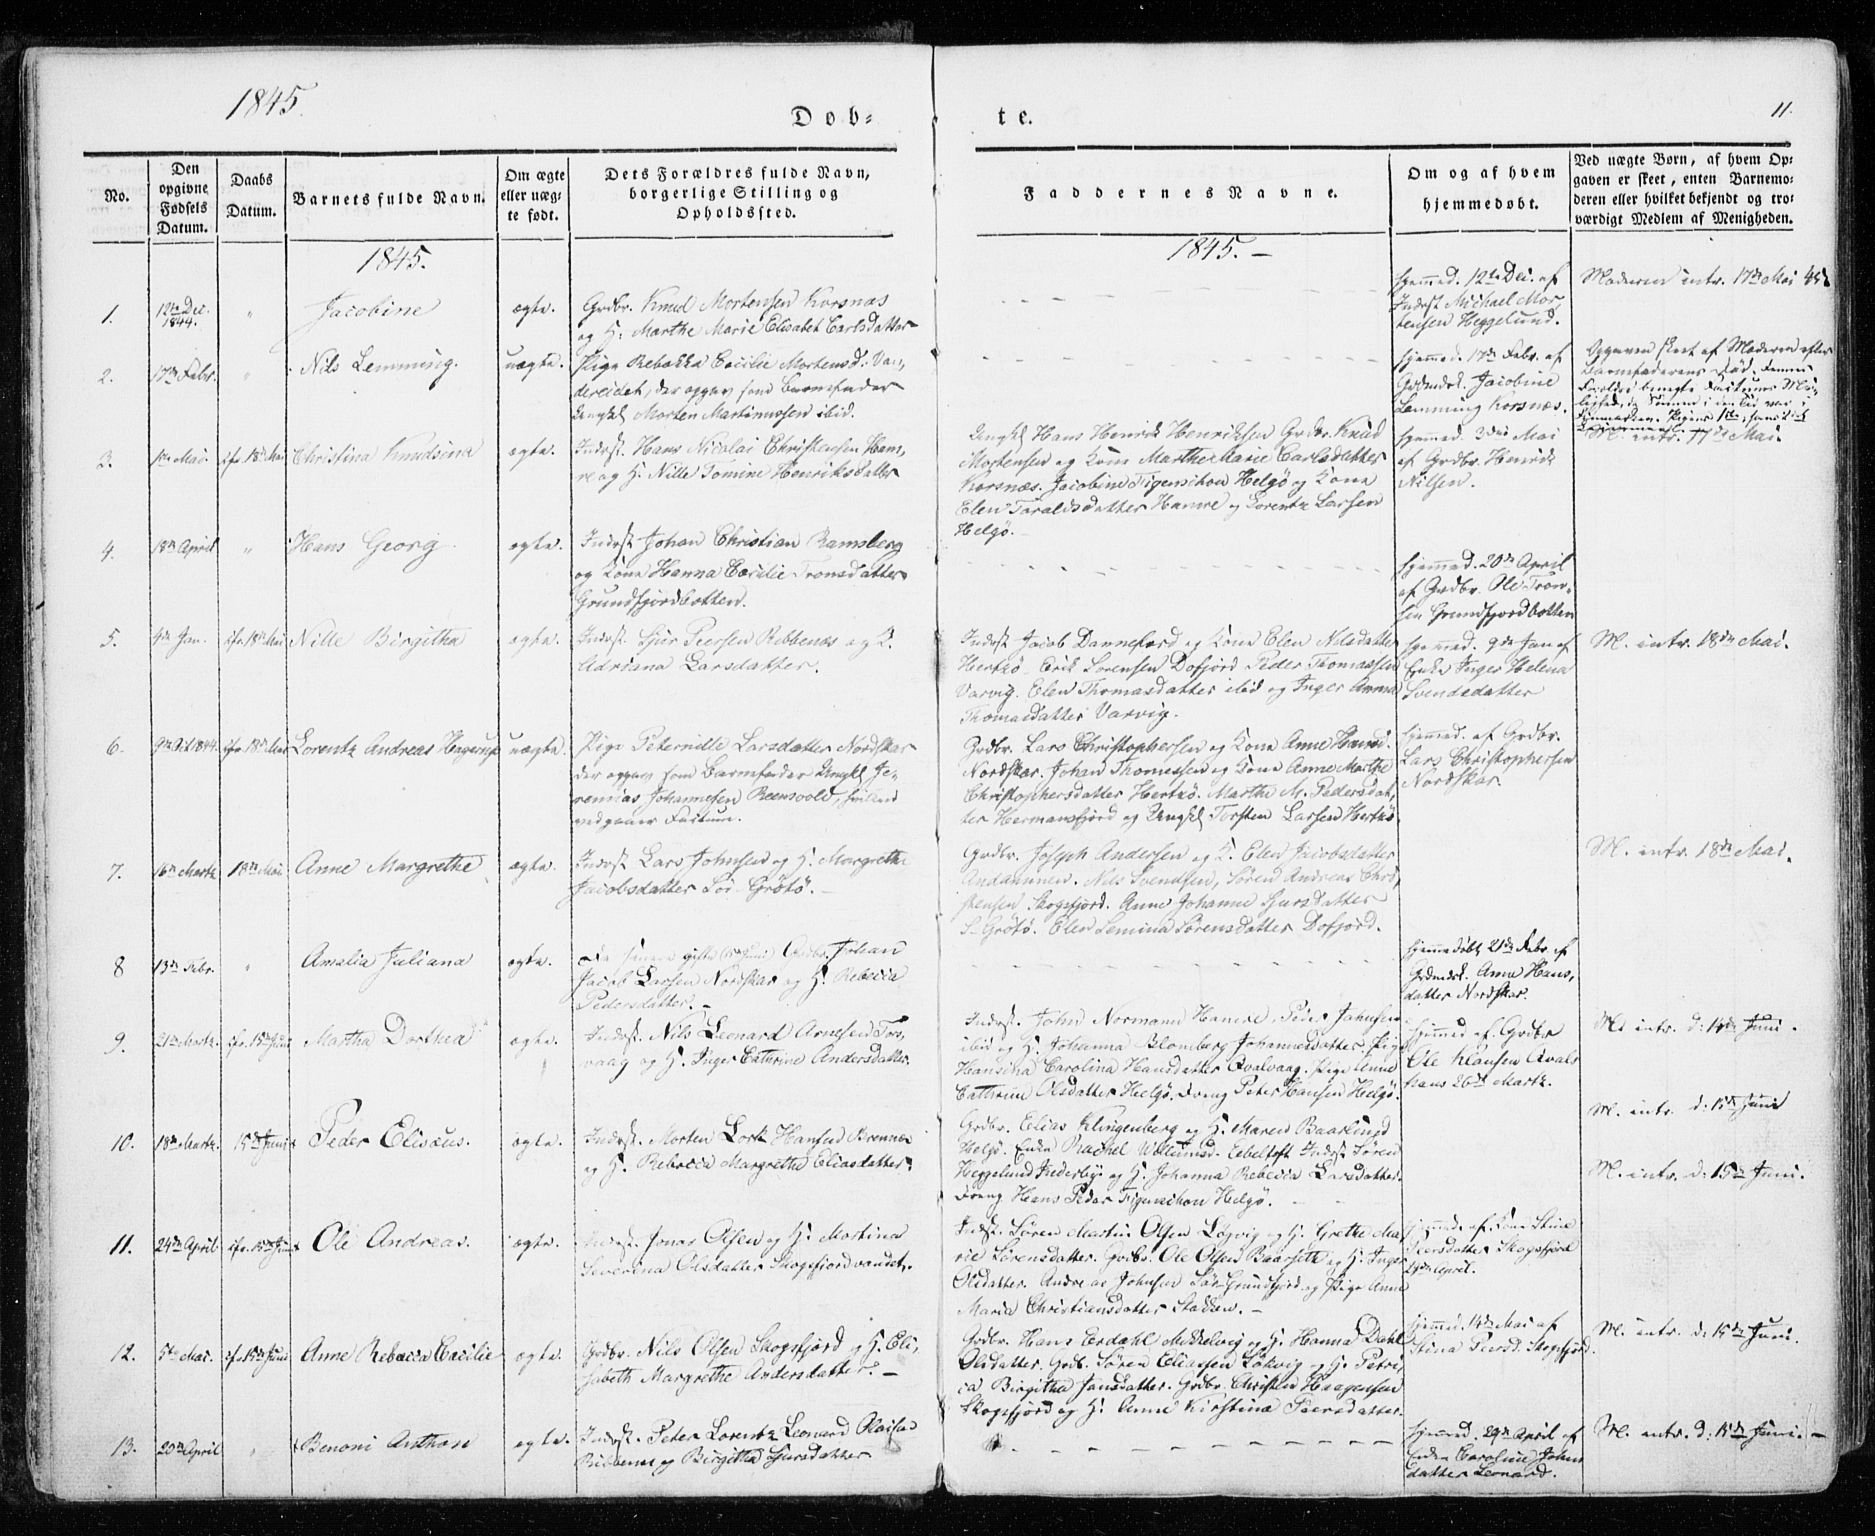 1845.
Døb-
te.
11.
No.
Den
opgivne
Fødsels
Datum.
Daabs
Datum.
Barnets fulde Navn.
Om ægte
eller uæg-
te født.
Dets Forældres fulde Navn,
borgerlige Stilling og
Opholdssted.
Faddernes Navne.
Om og af hvem
hjemmedøbt.
Ved uægte Børn, af hvem Op-
gaven er skeet, enten Barnemo-
deren eller hvilket bekjendt og tro-
værdigt Medlem af Menigheden.
1845.
1845. -
1.
12te Dec.
1844.
"
Jacobine
ægte.
Grdbr. Knud Mortensen Korsnæs
og H. Marthe Marie Elisabet Carlsdatter
hjemmed. 12te Dec. af
Inderst Michael Mor-
tensen Heggelund.
Moderen intr. 17de Mai 45
2.
17de Febr.
"
Nils Lemming.
uægte.
Pige Rebekka Cecilie Mortensd. Va-
dereidet, der opgav som Barnefader
Ungkl. Morten Martinussen ibid.
hjemmed. 17de Febr. af
Jacobine
Lemming Korsnæs.
Opgaven skeet af Moderen efter
Barnefaderens
M. intr. 17de Mai.
3.
1ste Mai
ifr. 18de Mai
Christina Knudsina
ægte.
Inderst. Hans Nicolai Christensen Ham-
re og H. Nille Tomine Henriksdatter
Ungkl. Hans Henrik Henriksen Grdbr. Knud
Mortensen og Kone Marthe Marie Carlsdatter
Korsnæs. Jacobine Figenschou Helgø og Kone
Elen Taraldsdatter Hamre og Lorentz Larsen
Helgø.
hjemmed. 3die Mai
af Grdbr. Henrik
Nilsen.
4.
18de April
"
Hans Georg
ægte.
Inderst Johan Christian Ramsberg
og Kone Hanna Cæcilie Tronsdatter
Grundfjordbotten.
hjemmed. 20de April
af Grdbr. Ole Tron-
sen Grundfjordbotten
5.
Jan.
ifr. 18de Mai
Nille Birgitha
ægte.
Inderst. Sjur Peersen Ribbenæs og K.
Adriana Larsdatter.
Inderst Jacob Dannefærd og Kone Elen Nilsdatter
Hertkø. Erik Sørensen Dofjord Peder Thomassen
Varvig. Elen Thomasdatter ibid og Inger Anna
Thomasdatter Varvig.
hjemmed. 9de Jan af
Enke Inger Helena
Svendsdatter
M. intr. 18de Mai.
6.
9de Oct 1844.
ifr. 18de Mai
Lorentz Andreas Hagerup
uægte.
Pige Peternille Larsdatter Nordskar
der opgav som Barnefader Ungkl. Je-
remias Johannesen Reenvold, hvilken
vedgaaer Factum.
Grdbr. Lars Christophersen og Kone Anne Hansd.
Nordskar. Johan Thomessen og Kone Anne Marthe
Christophersdatter Hertkø. Marthe M. Pedersdat-
ter Hermansfjord og Ungkl. Torsten Larsen Hertkø
hjemmed. af Grdbr.
Lars Christophersen
Nordskar.
7.
16de Martz
18de Mai
Anne Margrethe
ægte.
Inderst Lars Johnsen og H. Margrethe
Jacobsdatter Sør-Grøtø. -
Grdbr. Joseph Andersen og K. Elen Jacobsdatter
Andammen. Nils Svendsen, Søren Andreas Chri-
stensen Skogsfjord. Anne Johanne Sjursdatter
S. Grøtø. Elen Lemina Sørensdatter Dofjord.
M. intr. 18de Mai.
8
13de Febr.
"
Amalia Juliana
ægte.
De senere gifte Grdbr. Johan
Jacob Larsen Nordskar og H. Rebecca
Pedersdatter. -
hjemmedøbt 21de Febr. af
Anne Hans-
datter Nordskar.
9.
21de Martz.
ifr. 15de Juni
Martha Dorthea
ægte.
Inderst. Nils Leonard Arnesen Tors-
vaag og H. Inger Cathrine Andersdatter.
Inderst. John Normann Hamre, Peder Johnsen
ibid og H. Johanna Blomberg Johannesdatter, Pige
Hansina Carolina Hansdatter Qvalvaag. Pige Anne
Cathrine Olsdatter Helgø. Dreng Peter Hansen Helgø.
hjemmed af Grdbr
Ole Klausen Qval-
næs 26de Martz.
M. intr. d: 14de Juni.
10.
18de Martz.
15de Juni
Peder Elisæus.
ægte.
Inderst. Morten Lork Hansen Bremnes
og H. Rebecca Margrethe Eliasdatter.
Grdbr. Elias Klingenberg og H. Maren Baarlund
Helgø. Enke Rachel Willumsd. Eebeltoft Inderst Søren
Heggelund Nederby og H. Johanna Rebecca Larsdatter.
Dreng Hans Peder Figenschou Helgø.
M. intr. d: 15de Juni
M. intr. d: 15de Juni.
11.
24de April
ifr. 15de Juni
Ole Andreas.
ægte.
Inderst. Jonas Olsen og H. Martina
Severina Olsdatter Skogsfjordvandet.
Inderst. Søren Martin Olsen Løgvig og H. Grethe Ma-
rie Sørensdatter. Grdbr. Ole Olsen Baarseth og H. Inger
Olsdatter. Andreas Johnsen Sør-Grundfjord og Pige Anne
Maria Christiansdatter Stakken. -
hjemmed. af Kone Stine
Peersdatter Skogsfjord
April.
12.
5te Mai.
ifr. 15de Juni
Anne Rebecca Cæcilie
ægte.
Grdbr. Nils Olsen Skogsfjord og H. Eli-
sabeth Margrethe Andersdatter. -
Grdbr. Hans Erdahl Mikkelvig og H. Hanna Dahl
Olsdatter. Grdb. Søren Eliassen Løkvig og H. Petri-
ca Birgitha Jansdatter. Grdbr. Christen Haagensen
Skogsfjord og H. Anne Kirstina Peersdatter.
hjemmed. 14de Mai af
Stina Peersd. Skogsfjord.
M. intr. d: 15de Juni.
13.
20de April
"
Benoni Anthon
ægte.
Inderst. Peter Lorentz Leonard Olaisen
Ribbenæs og Birgitha Sjursdatter
hjemmed. 29de April af
Enke Caroline Johns-
datter Leonard.
M. intr. d: 15de Juni. -